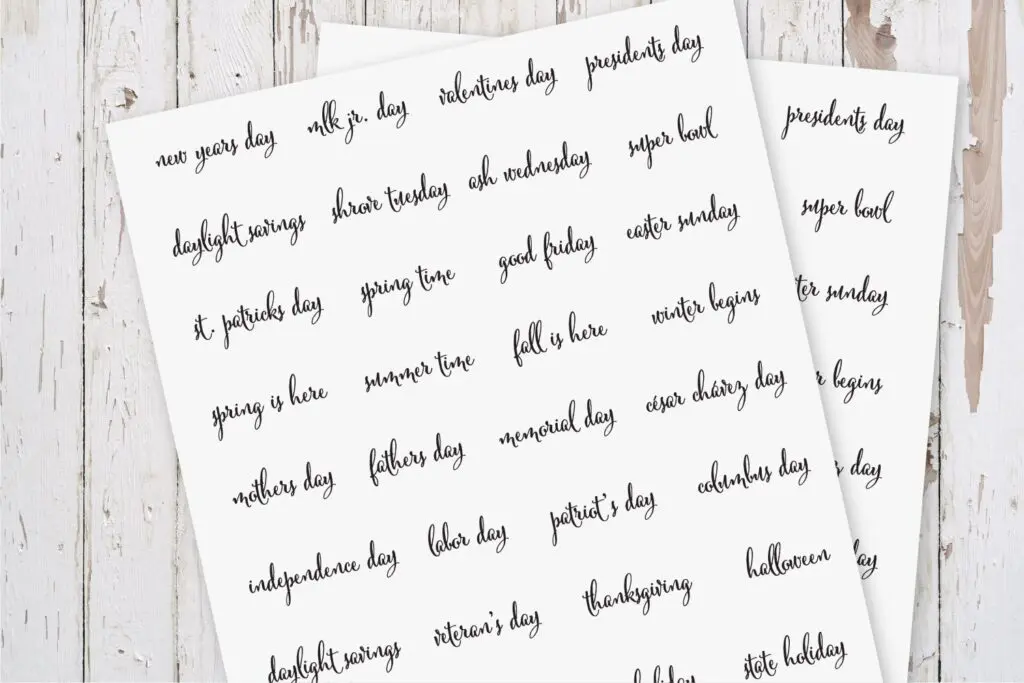 new years day mlk jr. day valentines day presidents day
daylight savings shrove tuesday ash wednesday super bowl
st. patricks day spring time good friday easter sunday
spring is here summer time fall is here winter begins
mothers day fathers day memorial day césar chávez day
independence day labor day patriot's day columbus day
daylight savings veteran's day thanksgiving halloween
holiday state holiday
presidents day
super bowl
ter sunday
r begins
s day
day